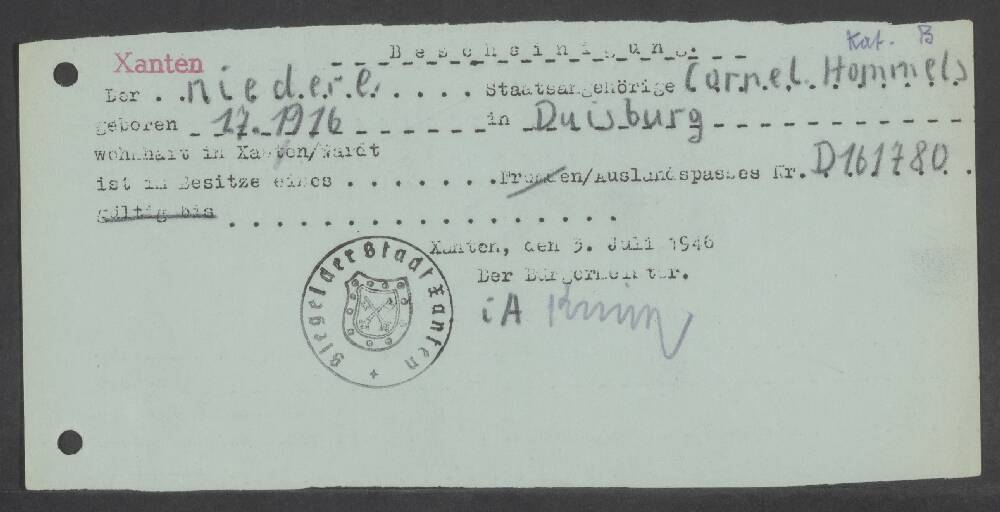 Kat. B
Xanten
Bescheinigung.
Der . . niederl. . . . . Staatsangehörige Cornel. Hommels
geboren _ 17.1916 _ _ _ _ _ _ in Duisburg
wohnhaft in Xanten/Wardt
ist im Besitze eines . . . . . . . Fremden/Auslandspasses Nr. D161780. .
gültig bis . . . . . . . . . . . . . . . . .
Xanten, den 5. Juli 1946
Der Bürgermeister.
iA
Siegel der Stadt Xanten